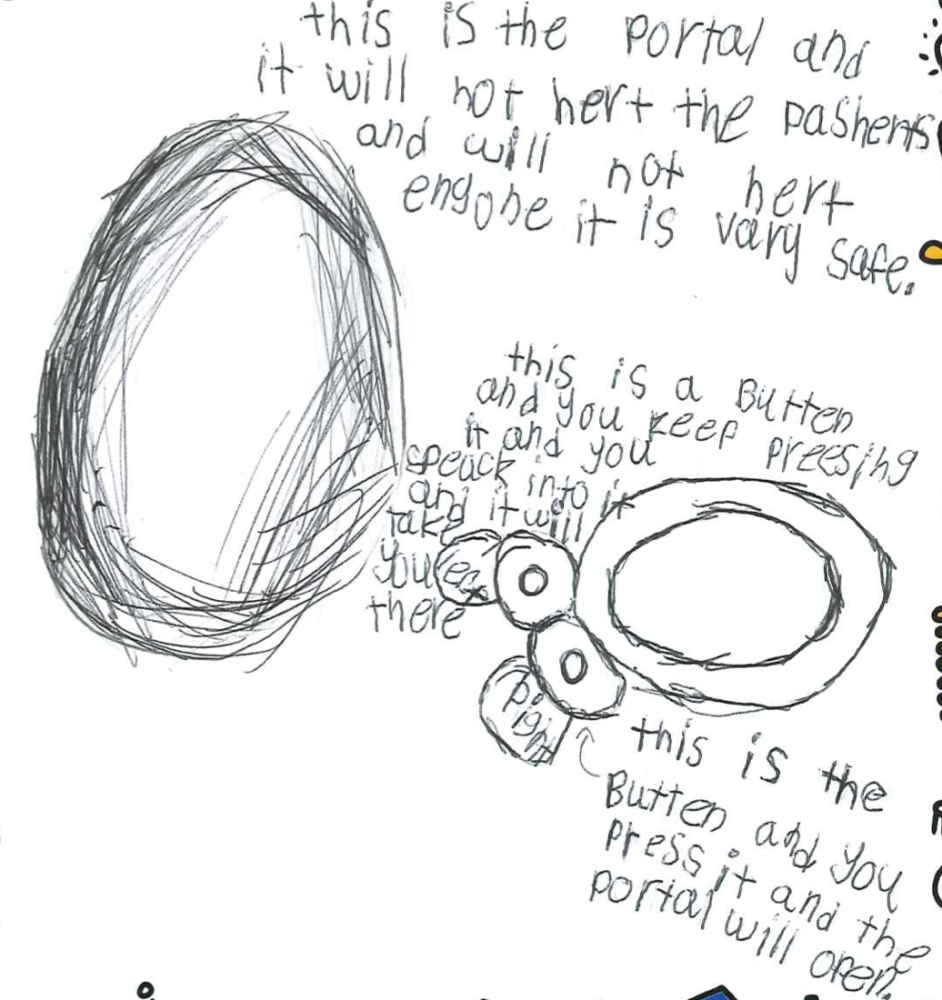 this is the portal and
it will not hert the pashents
and will not hert
engone it is vary safe.
this is a Butten
and you keep preesing
it and you
speack into it
and it will
take
you
there
this is the
Butten and you
press it and the
portal will open.